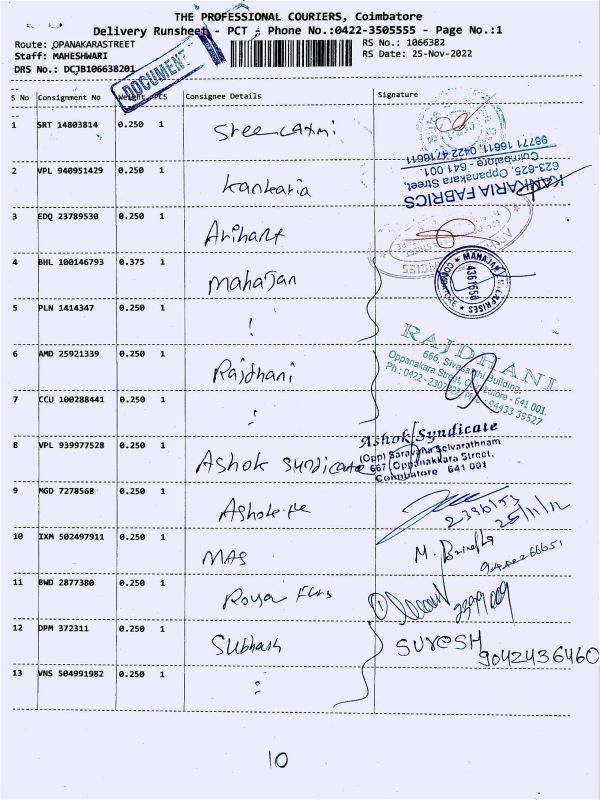 THE PROFESSIONAL COURIERS, Coimbatore
Delivery Runsheet - PCT - Phone No.:0422-3505555 - Page No.:1
Route: OPANAKARASTREET
RS No.: 1066382
Staff: MAHESHWARI
RS Date: 25-Nov-2022
DRS No.: DCJB106638201
DOCUMENT
S No Consignment No Weight PCS Consignee Details Signature
1 SRT 14803814 0.250 1 Sree Laxmi
2 VPL 940951429 0.250 1 Kankaria
KANKARIA FABRICS
623-625, Oppanakara Street,
Coimbatore - 641 001
98771 16611, 0422 4716611
3 EDQ 23789530 0.250 1 Arihant
4 BHL 100146793 0.375 1 Mahajan
MAHAJAN ENTERPRISES
COIMBATORE
4361650
5 PLN 1414347 0.250 1
6 AMD 25921339 0.250 1 Rajdhani
RAJDHANI
666, Building,
Oppanakara Street, Coimbatore - 641 001.
Ph : 0422 - 94433 39527
7 CCU 100288441 0.250 1
8 VPL 939977528 0.250 1 Ashok Syndicate
Ashok Syndicate
(Opp) Saravana Selvarathnam
667, Oppanakkara Street,
Coimbatore 641 001
9 MGD 7278568 0.250 1
10 IXM 502497911 0.250 1 MAS
11 BWD 2877380 0.250 1
12 DPM 372311 0.250 1 Subhash
SURESH
9042436460
13 VNS 504991982 0.250 1
10